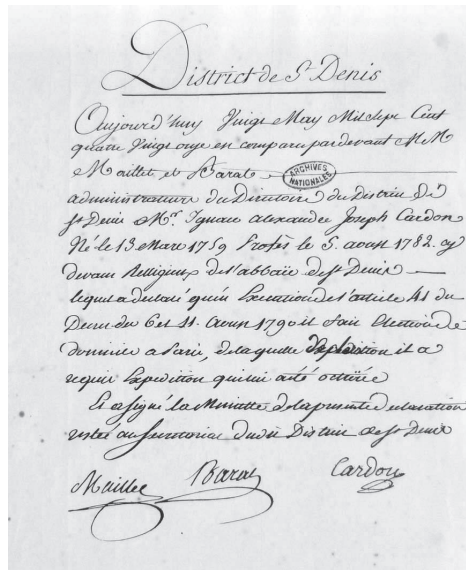 District de St Denis
Aujourd'huy Vingt May Mil Sept Cent
quatre Vingt onze en comparu pardevant MM
Maillet et Barat
ARCHIVES NATIONALES
administrateurs du Directoire du District De
St Denis Mr. Ignace alexandre Joseph Cardon
Né le 13 Mars 1759 Profès le 5. aoust 1782. cy
devant Religieux de l'abbaïe de St Denis
lequel a declaré qu'en Execution de l'article 41 du
Decret du 6 et 11. Aoust 1790 il fait Election de
domicile a Paris, de laquelle il a
requis Expedition qui lui a été octroïée
Et a signé la Minutte de la presente declaration
restée au Secretariat dudit District de St Denis
Maillet Barat Cardon